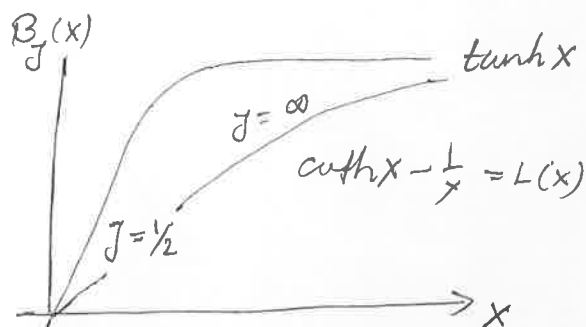 B_J(x)
tanh x
J = ∞
coth x - 1/x = L(x)
J = 1/2
x